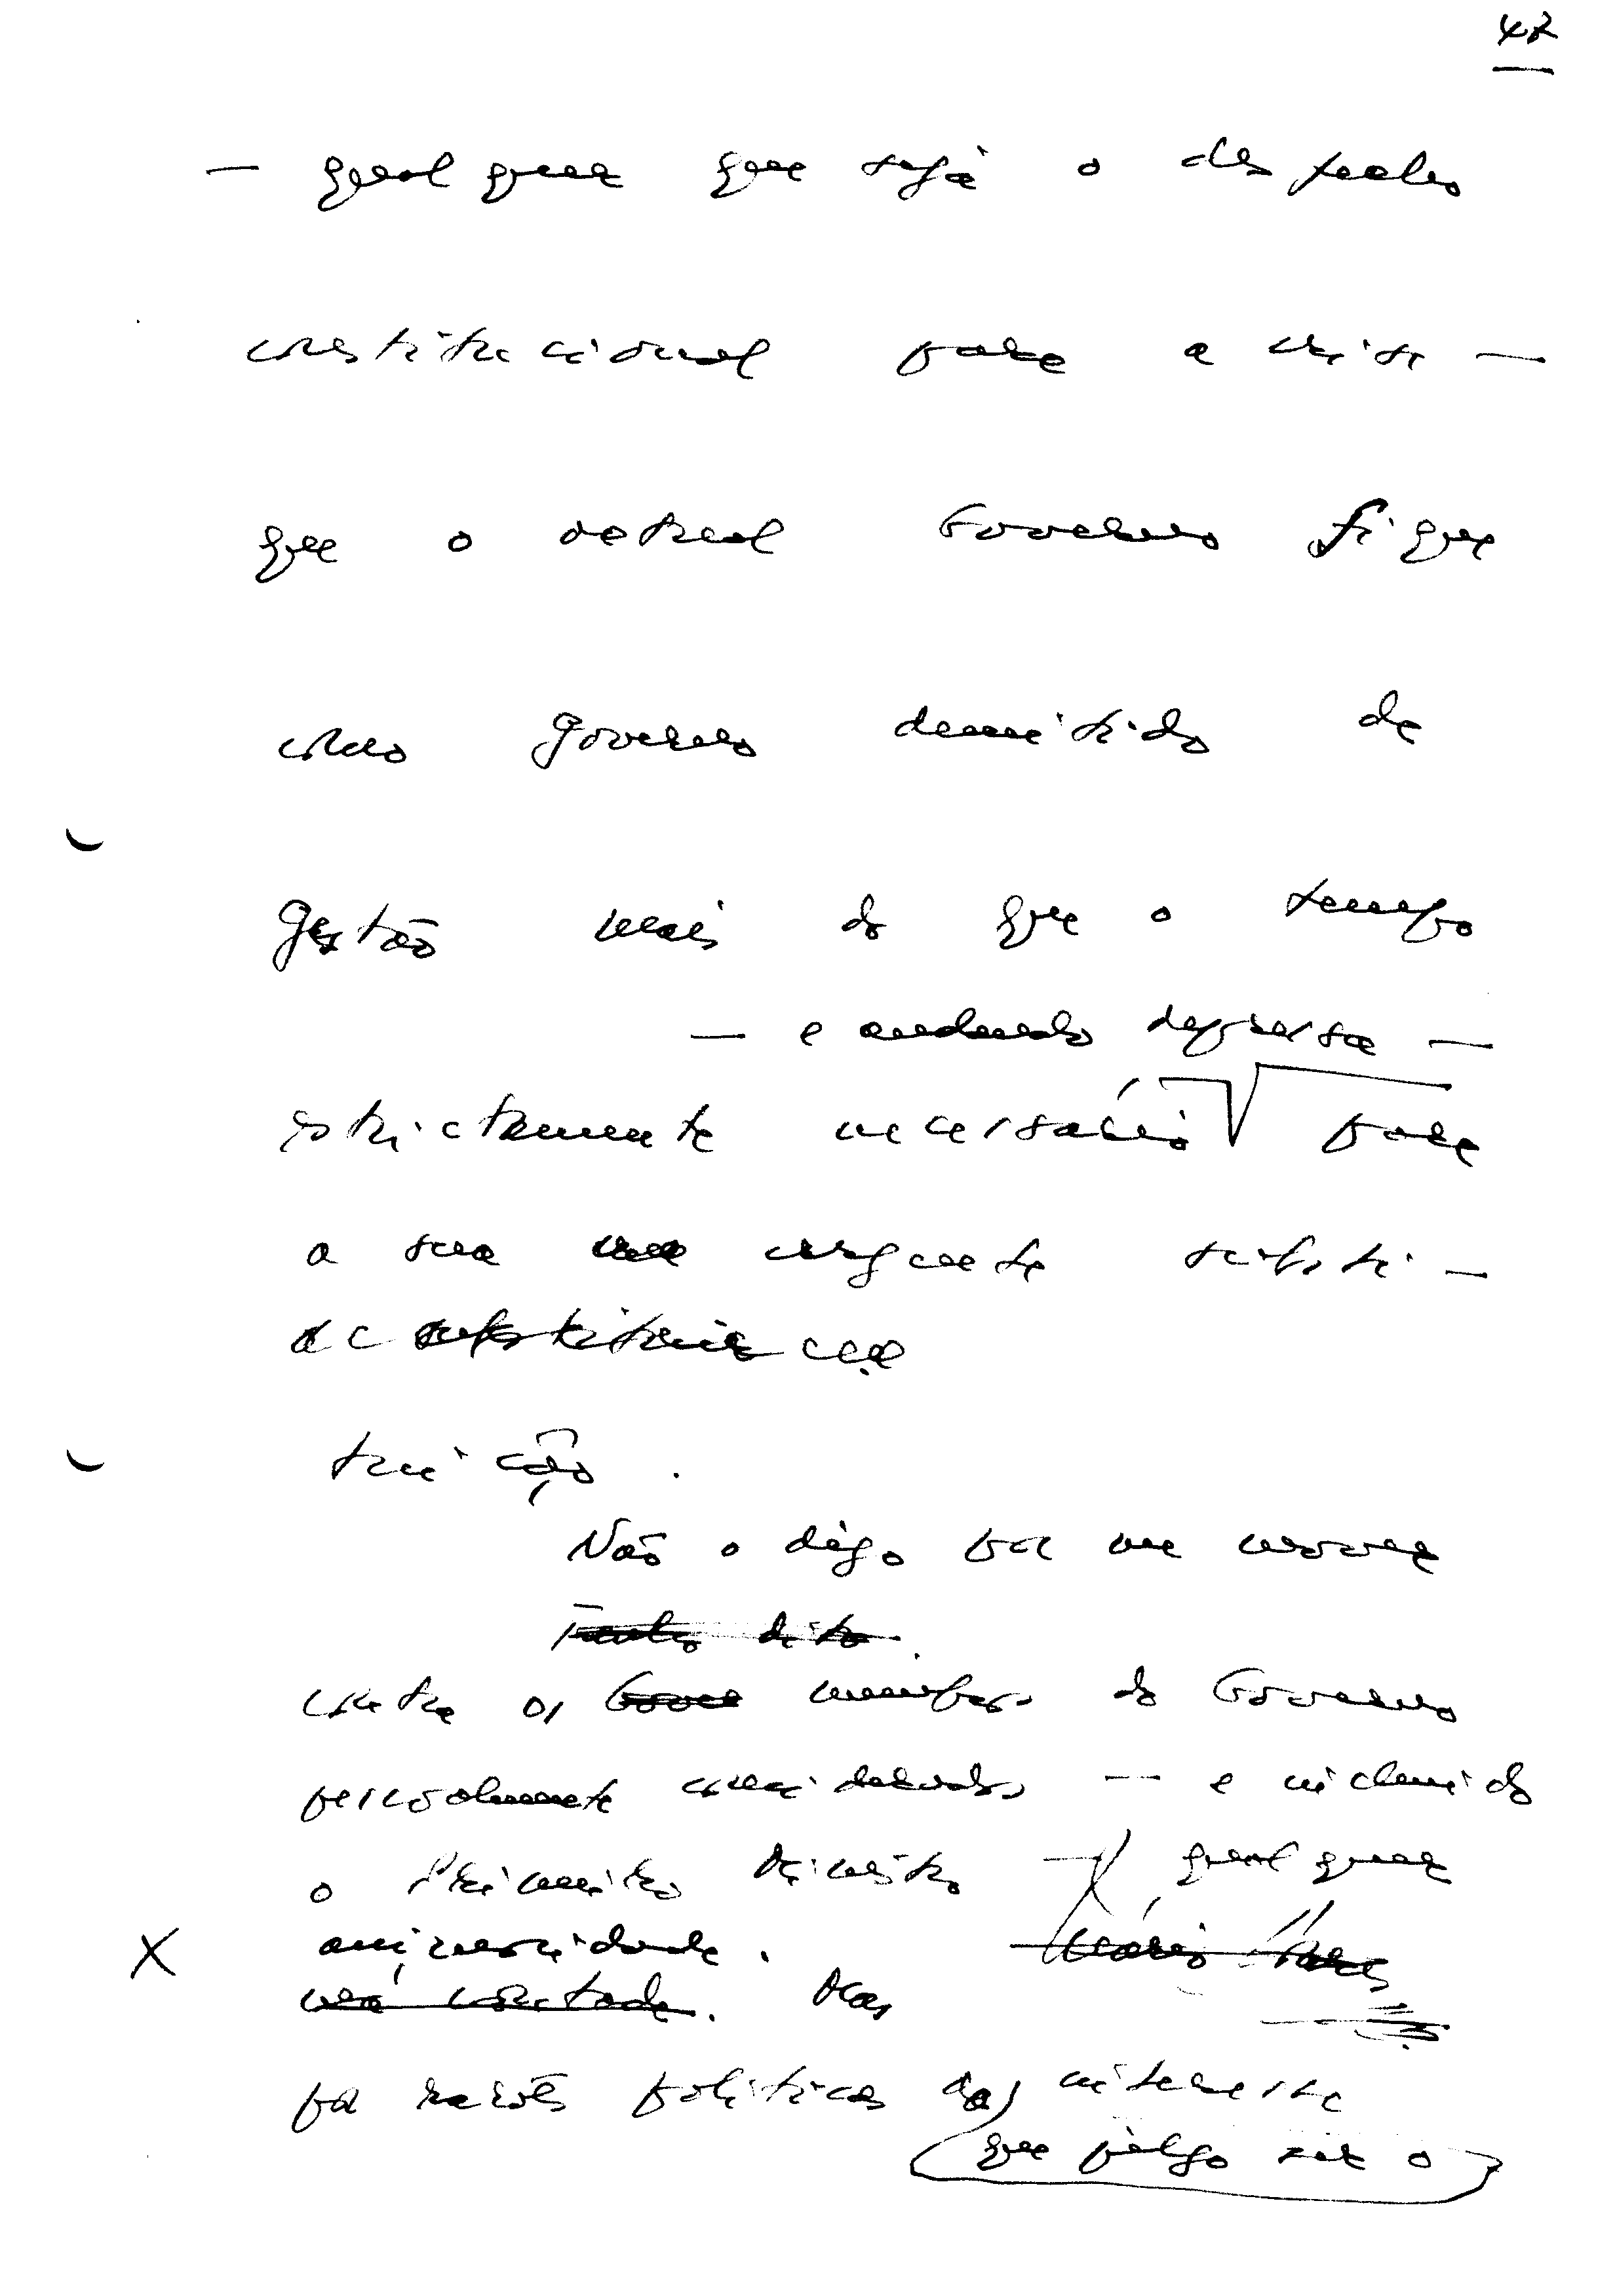 48
— qualquer que seja o desfecho
constitucional para a crise —
que o actual Governo fique
como governo demitido de
gestão mais do que o tempo
— e andando depressa —
estrictamente necessário para
a sua urgente substi-
tuição.
Não o digo por me mover
Tenho dito.
contra os membros do Governo
pessoalmente considerados — e incluindo
o Primeiro Ministro — qualquer
animosidade. Mário Soares
má vontade. Mas
por razões políticas de interesse
que julgo ser o